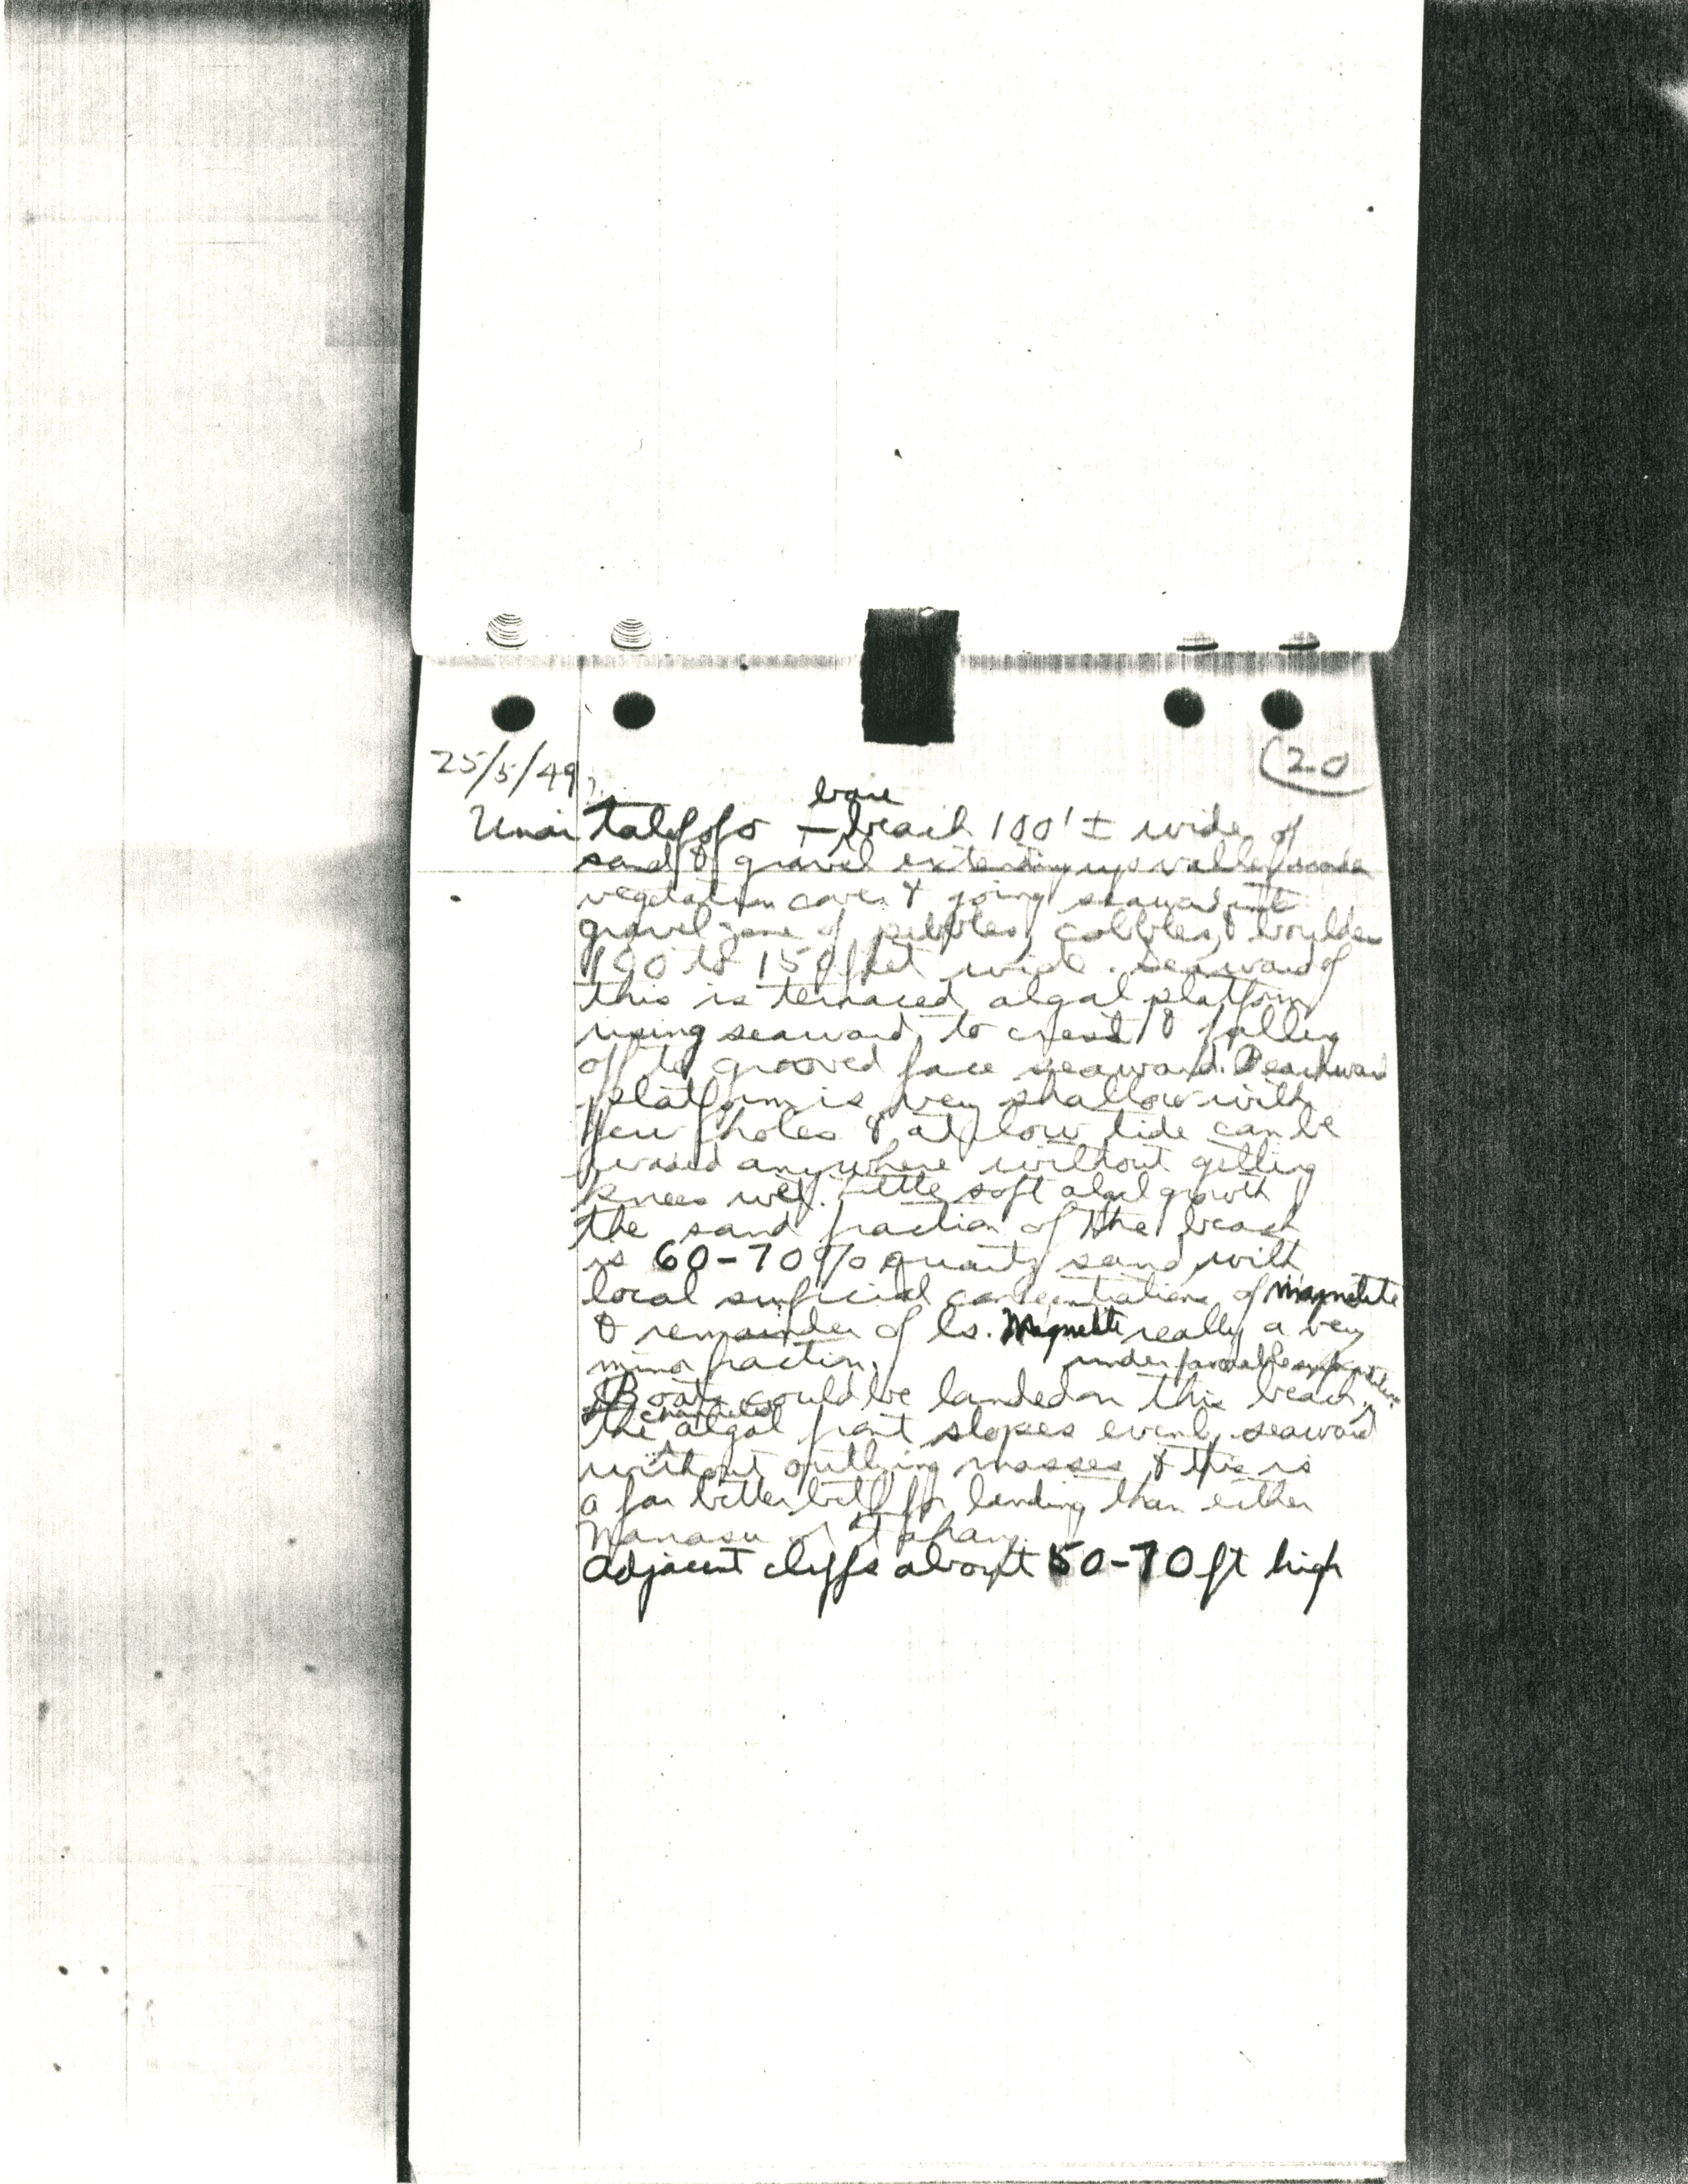 25/5/49
(20
bare
Unai Talofofo - beach 100' ± wide of
sand & gravel extending up valley under
vegetation cover & going seaward into
gravel zone of pebbles, cobbles, & boulders
100 to 150 feet wide. Seaward of
this is terraced algal platform
rising seaward to crest & falling
off to grooved face seaward. Beachward
platform is very shallow with
few holes & at low tide can be
waded anywhere without getting
knees wet. Little soft algal growth
The sand fraction of the beach
is 60-70% quartz sand with
local surficial concentrations of magnetite
& remainder of ls. Magnetite really a very
minor fraction.
under favorable
Boats could be landed on this beach.
The algal front slopes evenly seaward
without outlying masses & this is
a far better bet for landing than either
Nanasu or
Adjacent cliffs about 50-70 ft high